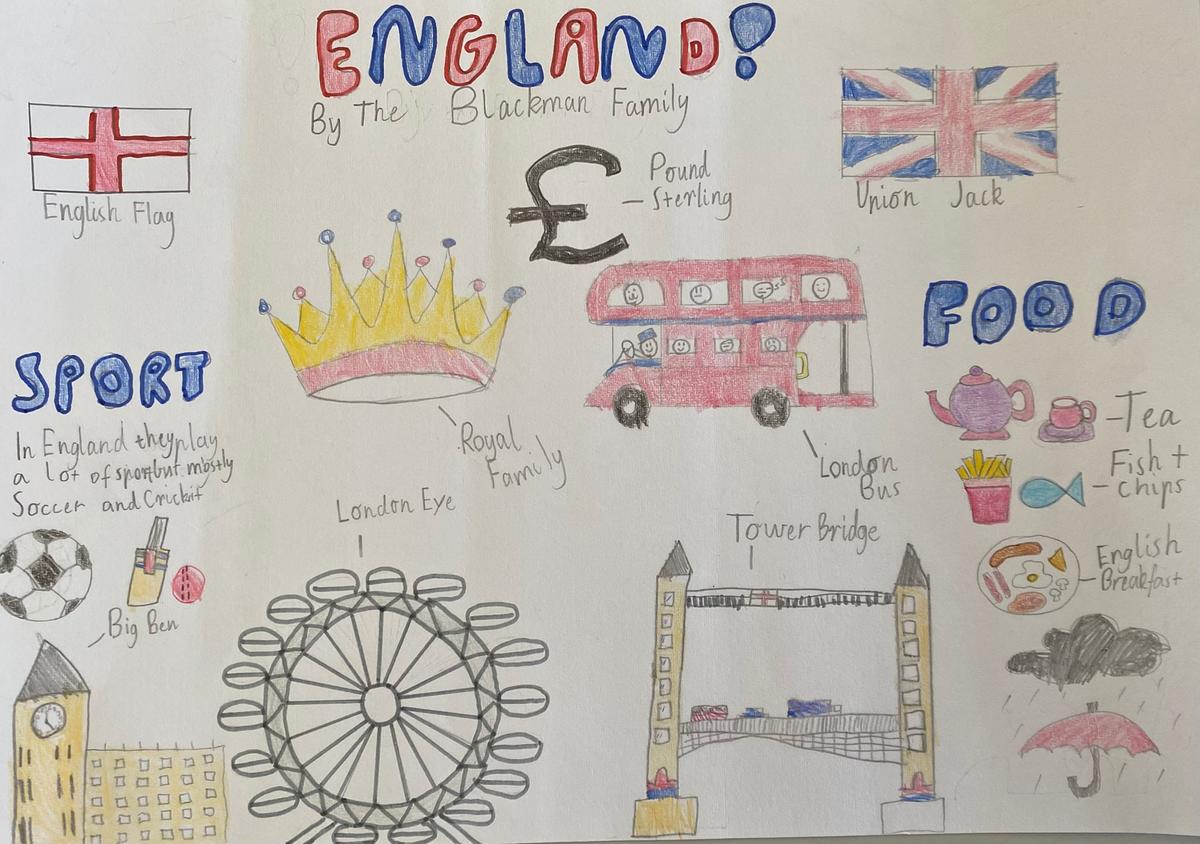 ENGLAND!
By The Blackman Family
English Flag
Union Jack
£
Pound
Sterling
Royal
Family
London
Bus
SPORT
In England they play
a lot of sport but mostly
Soccer and Crickit
Big Ben
London Eye
Tower Bridge
FOOD
Tea
Fish +
chips
English
Breakfast